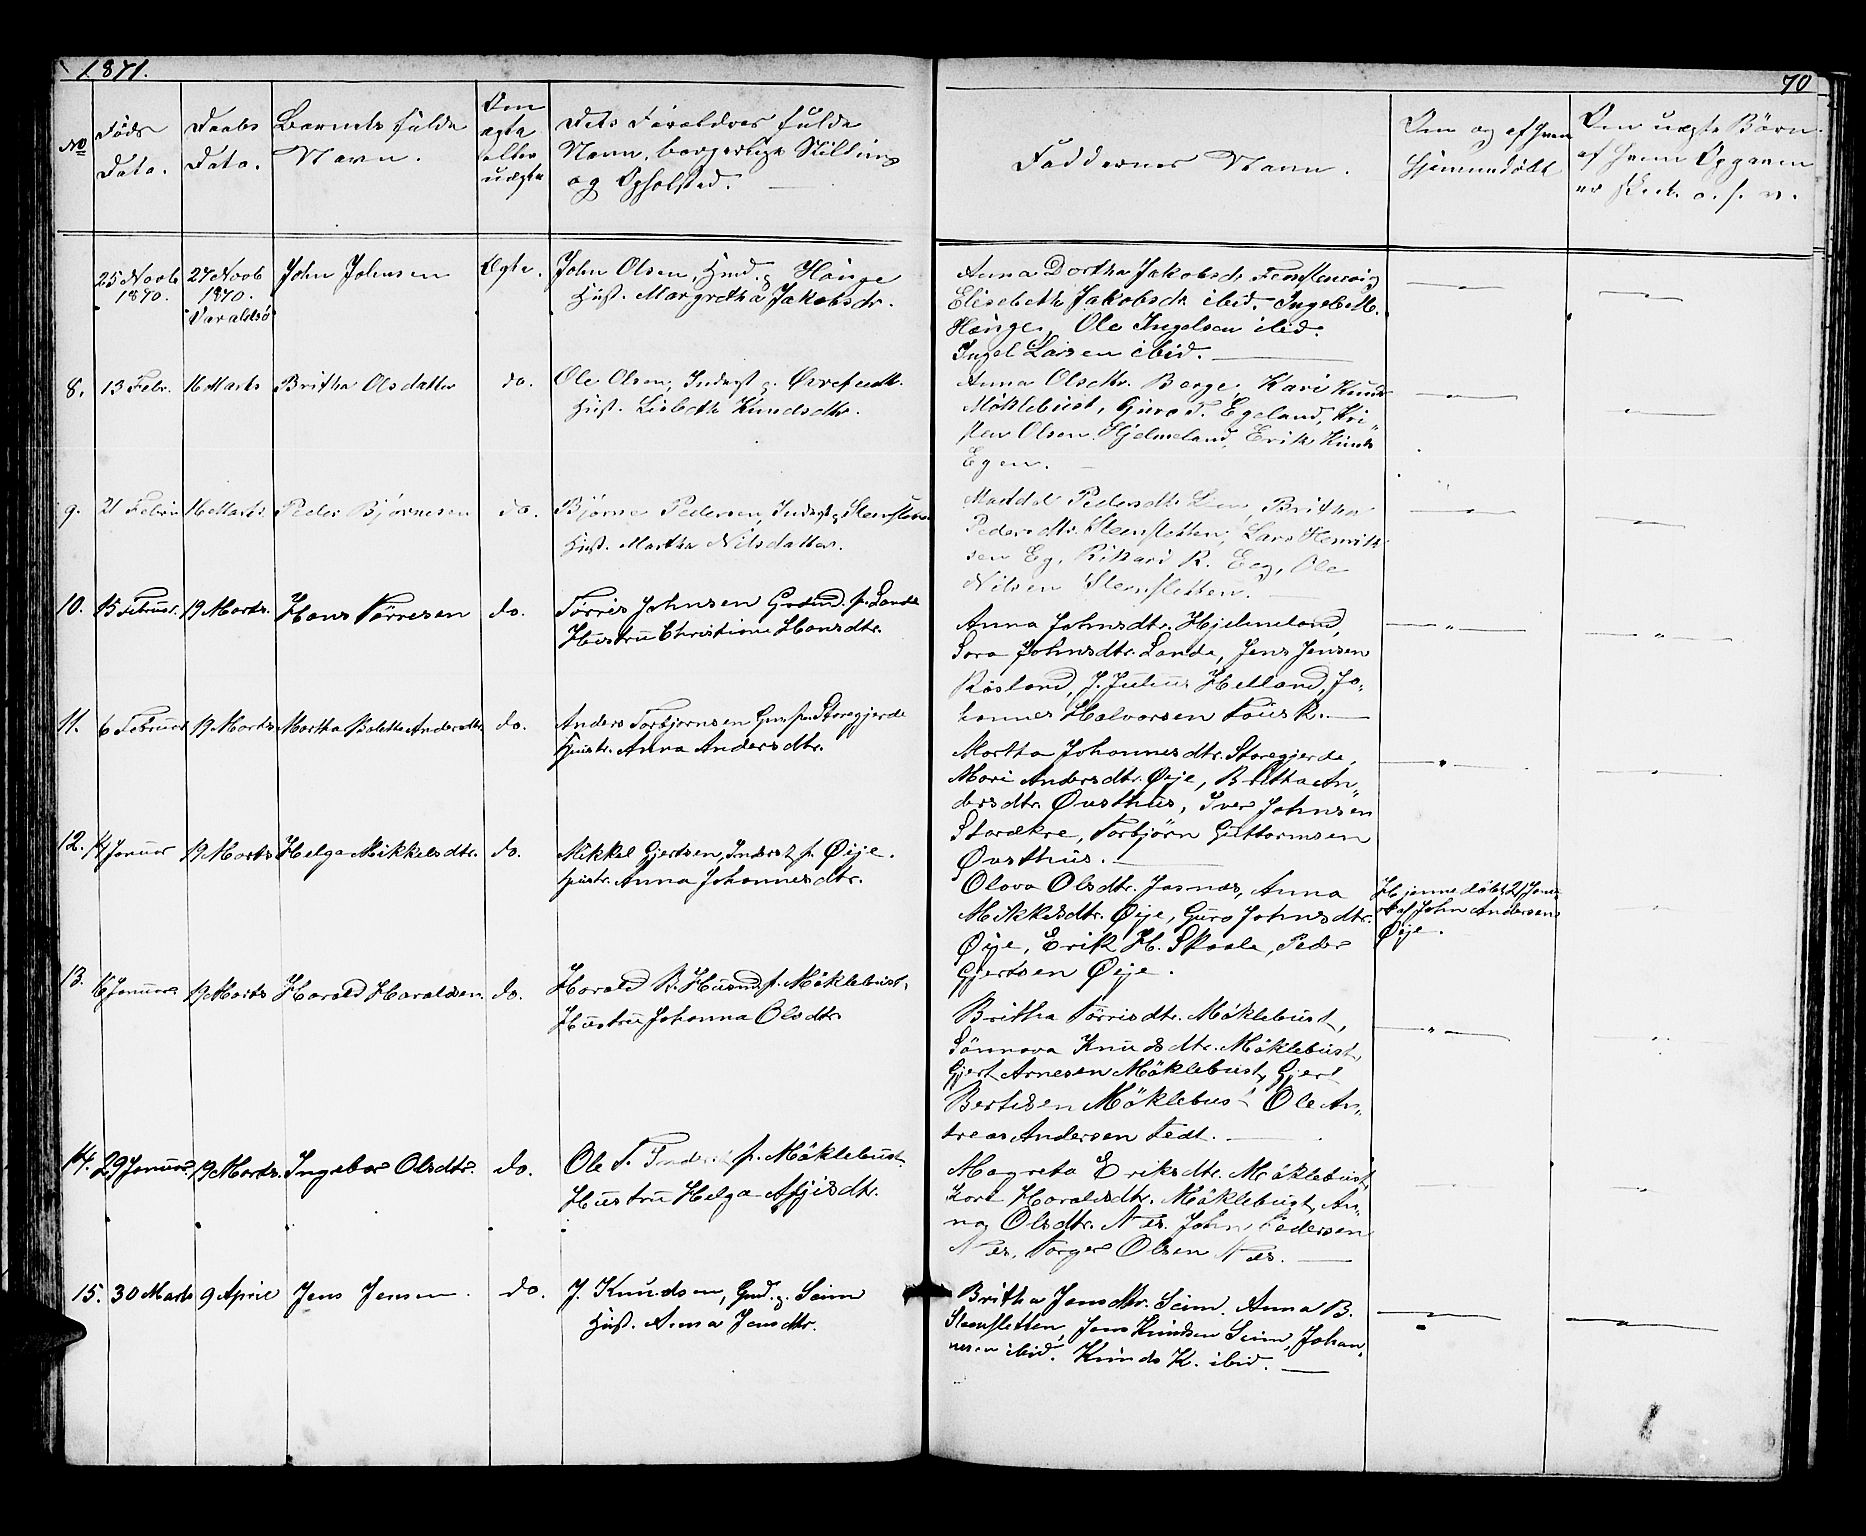 1871.
70
No
Føds
Dato.
Daabs
Dato.
Barnets fulde
Navn.
Om
ægte
eller
uægte
Dets Forældres fulde
Navn, borgerlige Stilling
og Opholsted.
Faddernes Navn.
Om og af hvem
hjemmedøbt
Om uægte Børn
af hvem Opgaven
er skeet o. s. v.
25 Novb
1870.
27 Novb
1870.
Varaldsø
John Johnsen
Ægte.
John Olsen, Hmd. p. Hauge
Hust. Margretha Jakobsdr.
Anna Dorthea Jakobsdr.
Elisebeth Jakobsdr ibid. Ingeb. M.
Hauge, Ole Ingelsen ibid.
Ingel Larsen ibid.
8. 13 Febr. 16 Marts Britha Olsdatter do.
Ole Olsen, Inderst p.
Hust. Lisbeth Knudsdtr.
Anna Olsdtr. Berge, Kari Knuds
Møklebust, Guro T. Egeland, Kri-
sten Olsen Hjelmeland, Erik Knuds
Egen.
9. 21 Febru 16 Marts. Peder Bjørnesen do.
Bjørne Pedersen, Inderst p. Stensletten
Hust. Martha Nilsdatter.
Pedersdtr Lien, Britha
Pedersdtr. Stensletten, Lars Henrik-
sen Eg, Rikard R. Eeg, Ole
Nilsen Stensletten.
10. 15 Februar. 19 Marts. Hans Tørresen do.
Tørris Johnsen Grdmd. p. Lande
Hustru Christiane Hansdtr.
Anna Johnsdtr. Hjelmeland,
Sara Johnsdtr. Lande, Jens Jensen
Røsland, J. Julius Helland, Jo-
hannes Halvorsen Fousk.
11. 6 Februar 19 Marts Martha Bolette Andersdtr do.
Anders Torbjørnsen Gmd. p. Storegjerde
Hustr. Anna Andersdtr.
Martha Johannesdtr. Storegjerde,
Mari Andersdtr. Øije, Britha An-
dersdtr. Øvsthus, Iver Johnsen
Storækre, Torbjørn Guttormsen
Øvsthus.
12. 14 Januar 19 Marts Helga Mikkelsdtr. do.
Mikkel Gjertsen, Inderst p. Øije.
Hustr. Anna Johannesdtr.
Olava Olsdtr. Josnæs, Anna
Mikkelsdtr. Øije, Guro Johnsdtr.
Øije, Erik H. Skaale, Peder
Gjertsen Øije.
Hjemmedøbt 21 Janu-
ar af John Andersen
Øije.
13. 16 Januar 19 Marts Harald Haraldsen. do.
Harald B. Husmd. p. Møklebust,
Hustru Johanna Olsdtr
Britha Tørrisdtr. Møklebust,
Sønnava Knudsdtr. Møklebust,
Gjert Arnesen Møklebust, Gjert
Bertisen Møklebust Ole An-
treas Andersen Tedt.
14. 29 Januar. 19 Marts. Ingebor Olsdtr. do.
Ole T. Inderst p. Møklebust.
Hustru Helga Asjisdtr.
Magreta Eriksdtr. Møklebust,
Kari Haraldsdtr. Møklebust, An-
na Olsdtr. Næs. John Pedersen
Næs, Torger Olsen Næs.
15. 30 Marts 9 April Jens Jensen. do.
J. Knudsen, Gmd. p. Seim
Hust. Anna Jensdtr.
Britha Jensdtr. Seim. Anna B.
Stensletten, Jens Knudsen Seim, Johan-
nesen ibid. Knuds K. ibid.